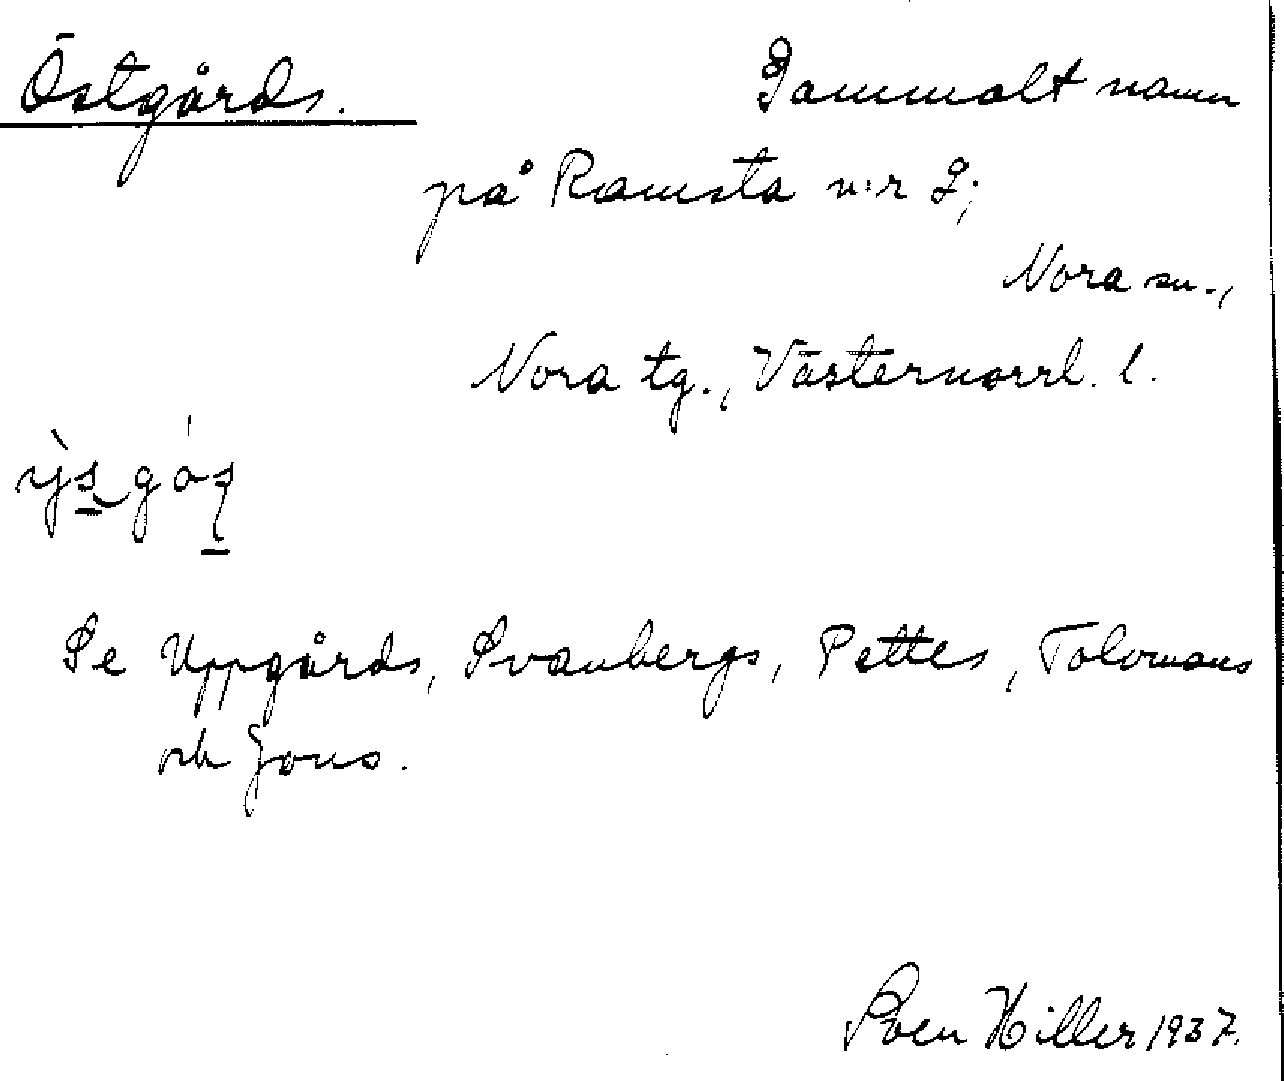 Östgårds. Gammalt namn
på Ramsta n:r 2;
Nora sn.,
Nora tg., Västernorrl. l.
Se Uppgårds, Svanbergs, Pettes, Tolvmans
och Jons.
Sven Hiller 1937.